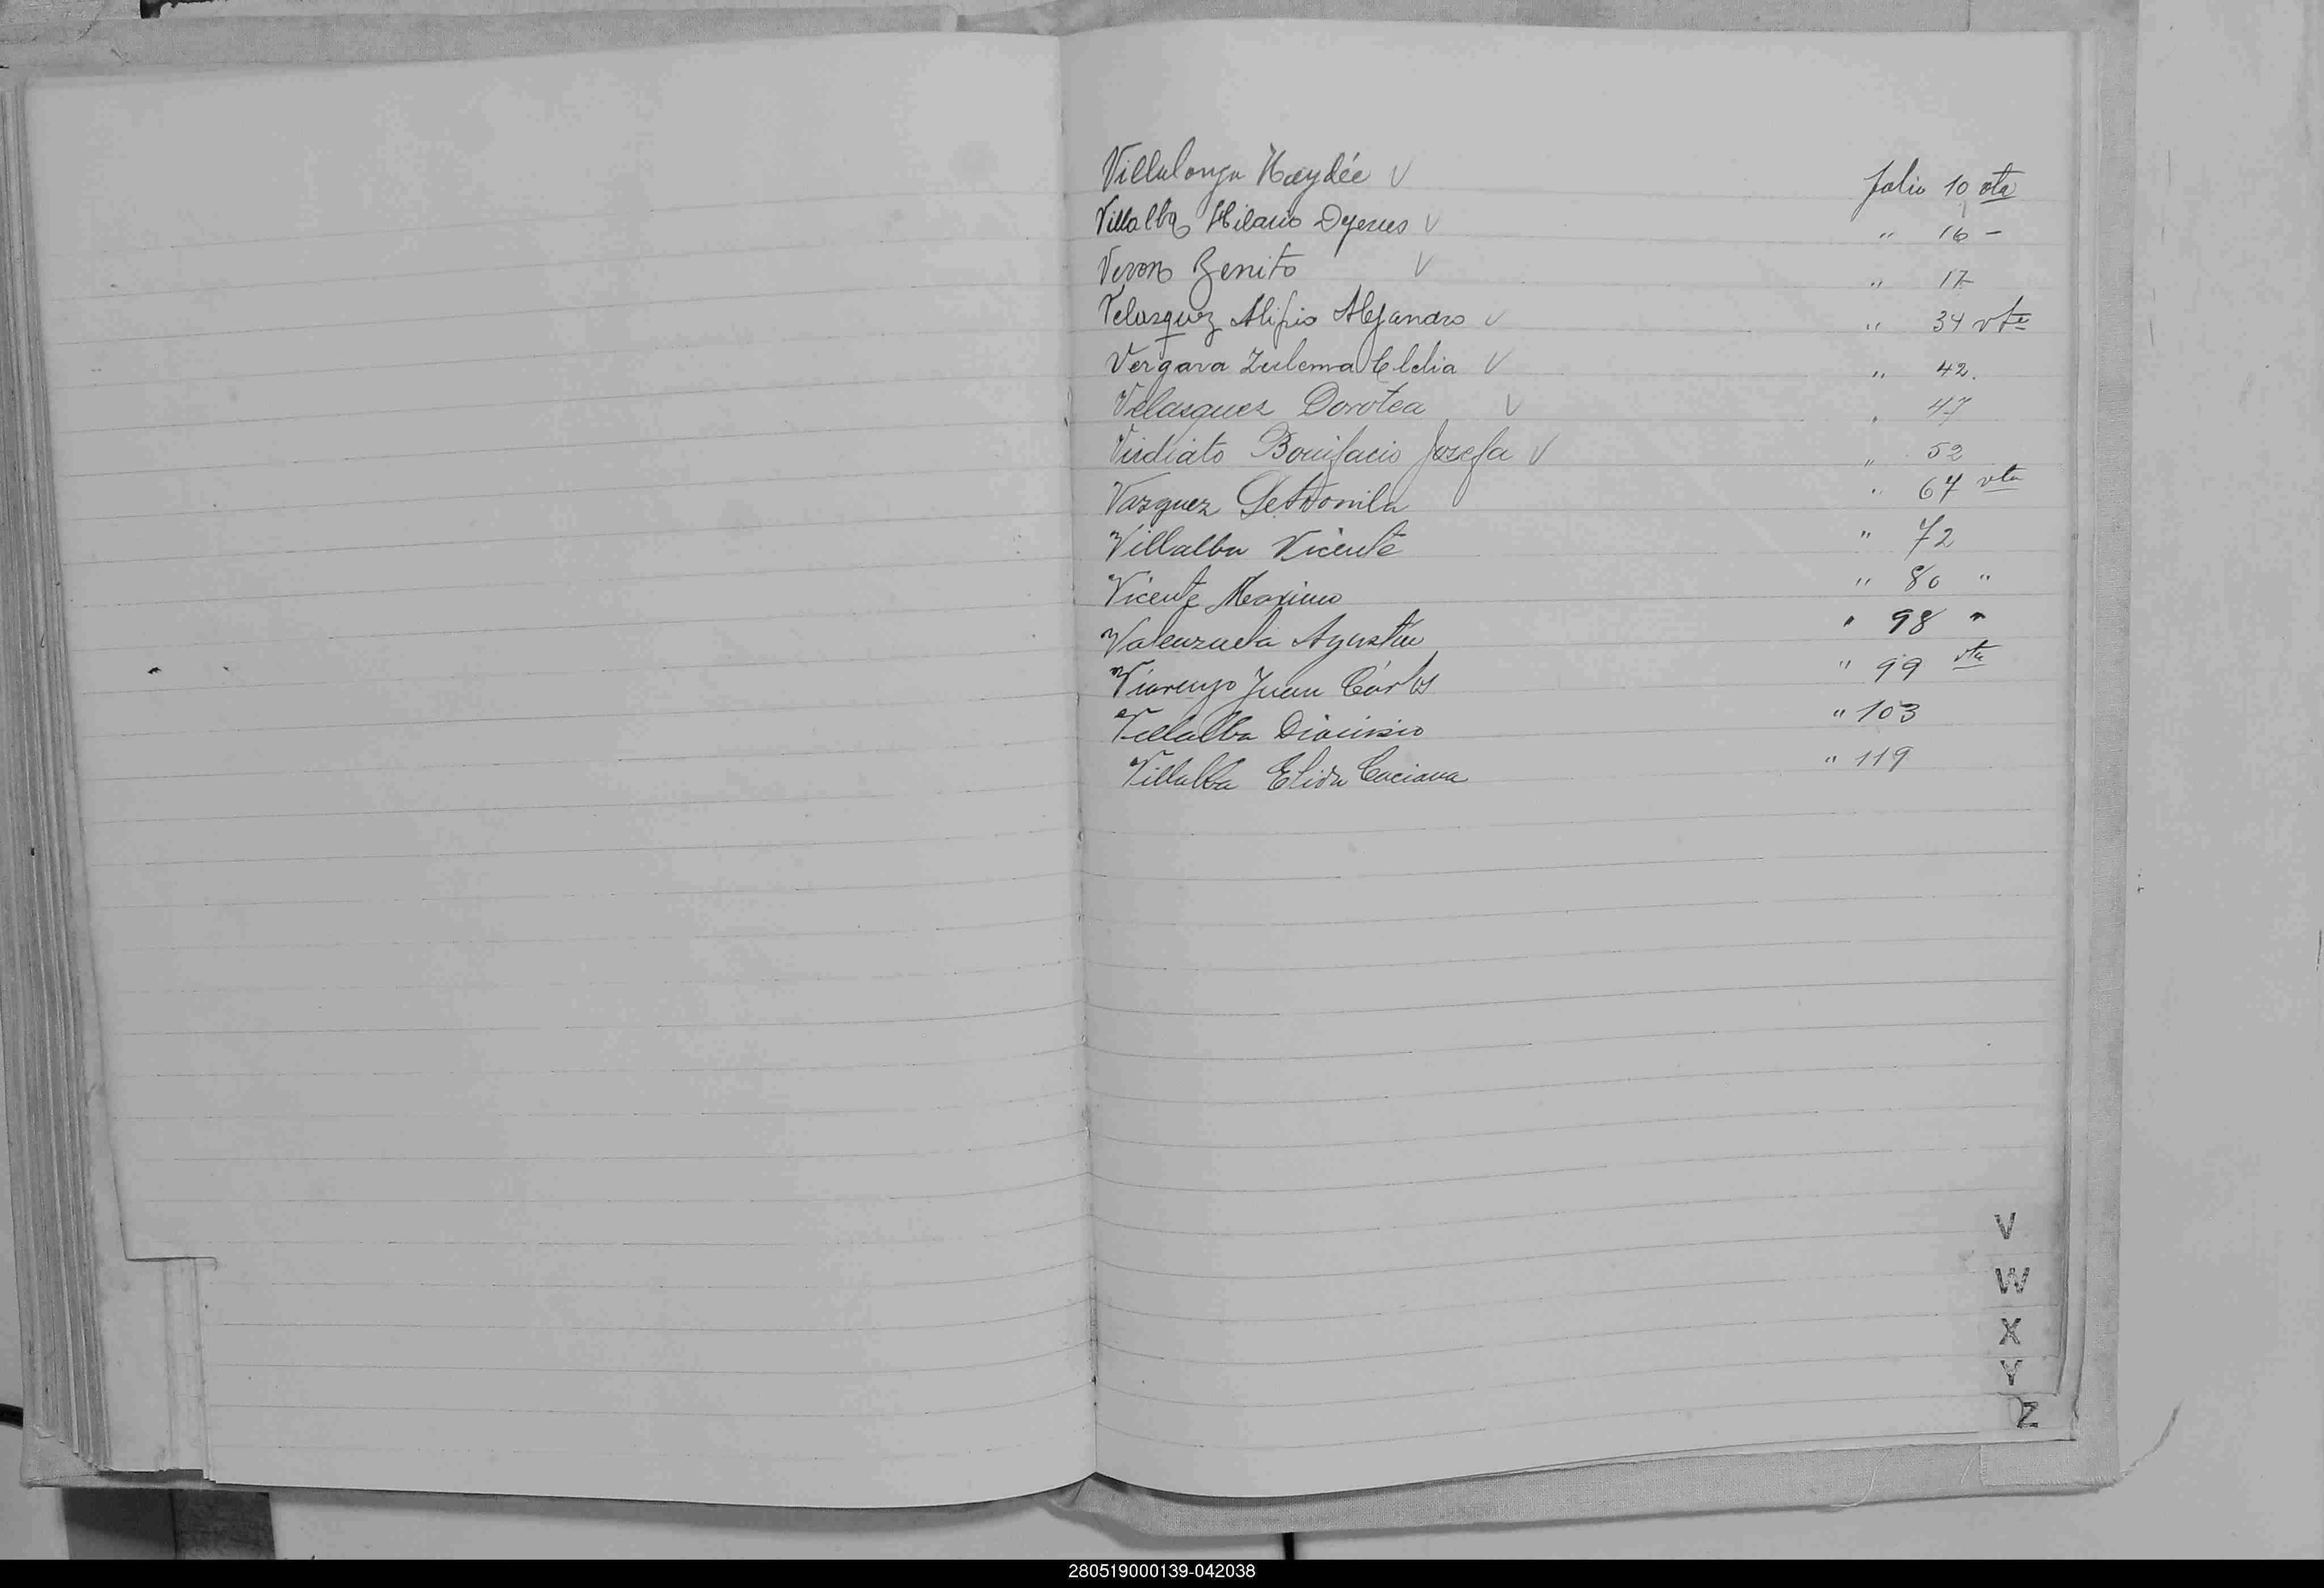 Villalonga Haydée V folio 10 vta
Villalba Hilario " 16 -
Veron Benito V " 17
Velasquez Alipio Alejandro V " 34 vta
Vergara Zulema Clelia V " 42.
Velasquez Dorotea V " 47
Bonifacio Josefa V " 52
Vazquez Petronila " 67 vta
Villalba Vicente " 72
Vicente Maximo " 80 "
Valenzuela Agustin " 98 "
Juan Cárlos " 99 vta
Villalba Dionisio " 103
Villalba Elida " 119
V
W
X
Y
Z
280519000139-042038